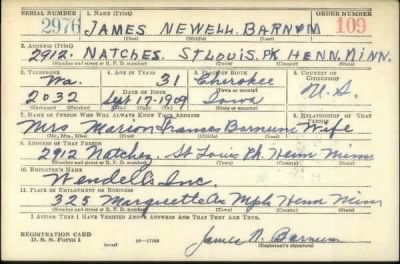 SERIAL NUMBER 1. NAME (Print) ORDER NUMBER
2976 JAMES NEWELL BARNUM 109
(First) (Middle) (Last)
2. ADDRESS (Print)
2912 NATCHES. ST LOUIS. PK HENN. MINN.
(Number and street or R. F. D. number) (Town) (County) (State)
3. TELEPHONE 4. AGE IN YEARS 5. PLACE OF BIRTH 6. COUNTRY OF CITIZENSHIP
Wa. 31 Cherokee
DATE OF BIRTH U.S.
2032 Sept 17-1909 Iowa
(Exchange) (Number) (Mo.) (Day) (Yr.) (State or country)
7. NAME OF PERSON WHO WILL ALWAYS KNOW YOUR ADDRESS 8. RELATIONSHIP OF THAT PERSON
Mrs. Marion Frances Barnum Wife
(Mr., Mrs., Miss) (First) (Middle) (Last)
9. ADDRESS OF THAT PERSON
2912 Natches St Louis Pk. Henn Minn
(Number and street or R. F. D. number) (Town) (County) (State)
10. EMPLOYER'S NAME
Wendells Inc.
11. PLACE OF EMPLOYMENT OR BUSINESS
325 Marquette Av Mpls Henn Minn
(Number and street or R. F. D. number) (Town) (County) (State)
I AFFIRM THAT I HAVE VERIFIED ABOVE ANSWERS AND THAT THEY ARE TRUE.
REGISTRATION CARD
D. S. S. FORM 1 16-17105 James N. Barnum
(Registrant's signature)